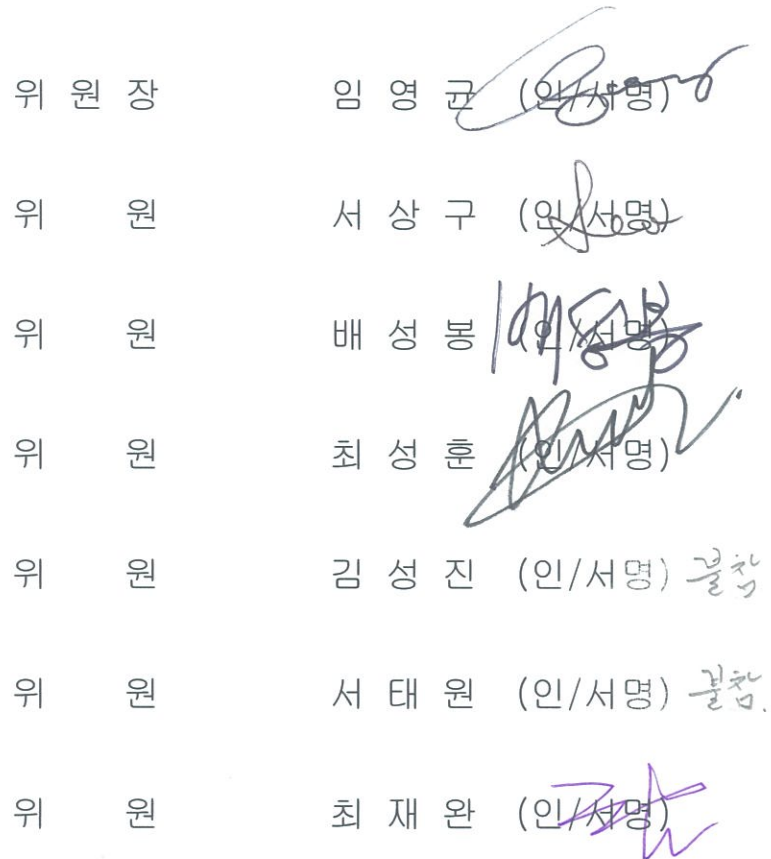 위 원 장 임 영 균 (인/서명)
위 원 서 상 구 (인/서명)
위 원 배 성 봉 (인/서명)
위 원 최 성 훈 (인/서명)
위 원 김 성 진 (인/서명) 불참
위 원 서 태 원 (인/서명) 불참.
위 원 최 재 완 (인/서명)